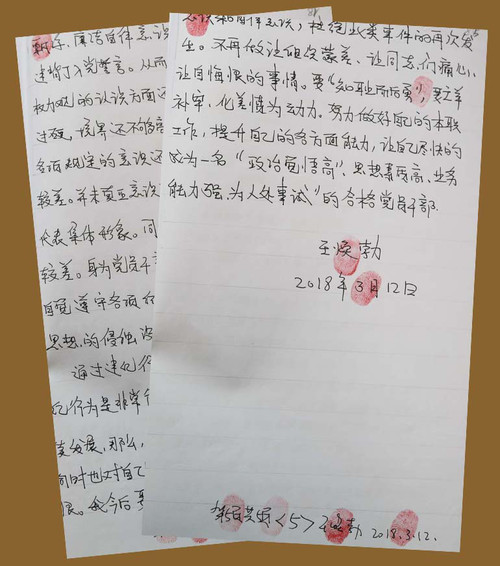 廉洁自律意识
过背了入党誓言。从而
权力观的认识方面还
过硬，境界还不够高
各项规定的意识还
较差。并未真正意识
代表集体形象。同
较差。身为党员干
自觉遵守各项
思想的侵蚀
通过违纪行
纪行为是非常
发展，那么，
同时也对自己
展。我今后要
意识和自律意识，杜绝此类事件的再次发
生。不再做让组织蒙羞、让同志们痛心、
让自悔恨的事情。要“知耻而后勇”，要亡羊
补牢，化羞愤为动力。努力做好自己的本职
工作，提升自己的各方面能力，让自己尽快的
成为一名“政治觉悟高”、思想素质高、业务
能力强、为人处事诚”的合格党员干部。
王焕勃
2018年3月12日
第5页共5页<5> 王焕勃 2018.3.12.